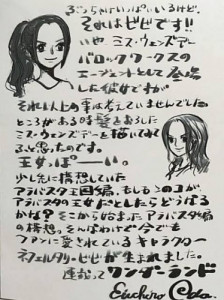 ぶっちゃけいっぱいいるけど、
それはビビです!!
いや ミス・ウェンズデー
バロックワークスの
エージェントとして登場
した彼女ですが
それ以上の事は考えていませんでした。
ところがある時髪をおろした
ミス・ウェンズデーを描いてみて
ふと思ったのです。
王女っぽーーい。
少し先に構想していた
アラバスタ王国編、もしもこのコが、
アラバスタの王女だとしたらどうなる
かな? そこから始まったアラバスタ編
の構想。そんなわけで今でも
ファンに愛されているキャラクター
ネフェルタリ・ビビが生まれました。
連載って ワンダーランド
Eiichiro Oda.